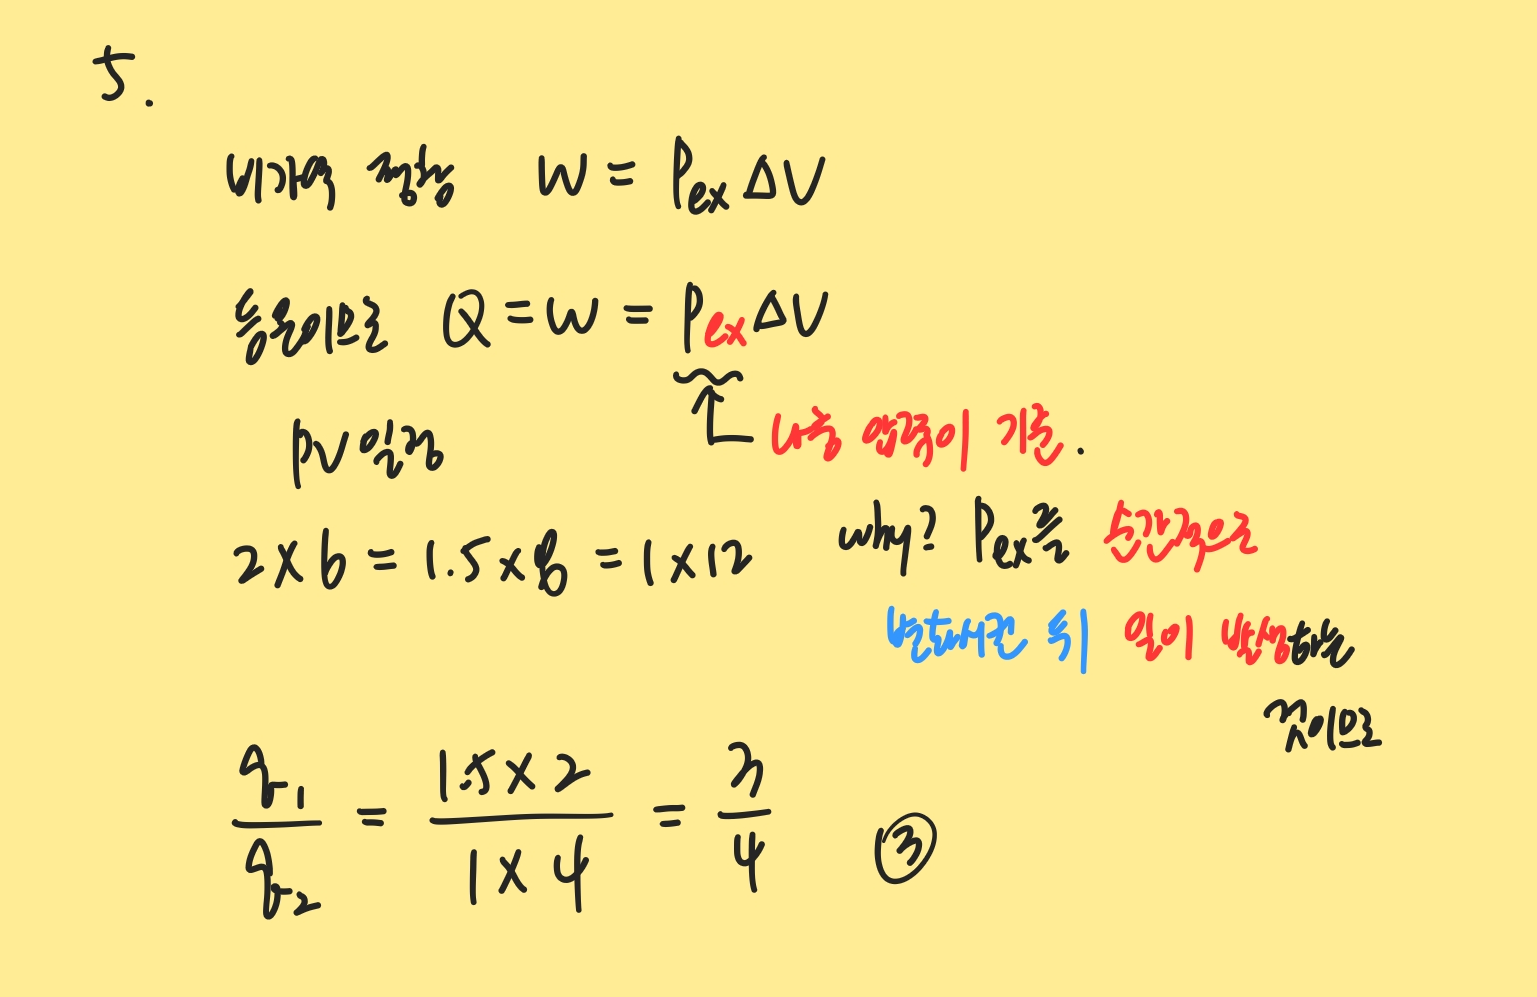 5.
비가역 팽창 W = Pex ΔV
등온이므로 Q = W = Pex ΔV
PV 일정
나중 압력이 기준.
2 x 6 = 1.5 x 8 = 1 x 12
why? Pex를 순간적으로
변화시킨 뒤 일이 발생하는
것이므로
q₁/q₂ = (1.5 x 2)/(1 x 4) = 3/4 ③